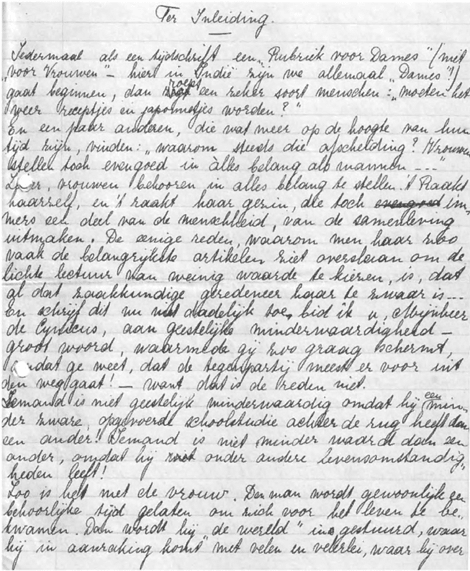 Ter Inleiding.
Iedermaal als een tijdschrift een „Rubriek voor Dames" (niet
„voor Vrouwen" – hier in Indië zijn we allemaal „Dames"!)
gaat beginnen, dan roept een zeker soort menschen: „moeten het
weer receptjes en japonnetjes worden?"
En een paar anderen, die wat meer op de hoogte van hun
tijd zijn, vinden: „waarom steeds die afscheiding? Vrouwen
stellen toch evengoed in àlles belang als mannen ...."
Zeker, vrouwen behooren in alles belang te stellen. 't Raakt
haarzelf, en 't raakt haar gezin, die toch evengoed im-
mers een deel van de menschheid, van de samenleving
uitmaken. De eenige reden, waarom men haar zoo
vaak de belangrijkste artikelen ziet overslaan om de
lichte lectuur van weinig waarde te kiezen, is, dat
al dat zaakkundige geredeneer haar te zwaar is ....
En schrijf dit nu niet dadelijk toe, bid ik u, Mijnheer
de Cynicus, aan geestelijke minderwaardigheid –
groot woord, waarmede gij zoo graag schermt,
omdat ge weet, dat de tegenpartij meest er voor uit
den weg gaat! – want dat is de reden niet.
Iemand is niet geestelijk minderwaardig omdat hij een min-
der zware, opgevoerde schoolstudie achter de rug heeft dan
een ander! Iemand is niet minder waard dan een
ander, omdat hij onder andere levensomstandig-
heden leeft!
Zoo is het met de vrouw. Den man wordt gewoonlijk een
behoorlijke tijd gelaten om zich voor het leven te be-
kwamen. Dan wordt hij de wereld in gestuurd, waar
hij in aanraking komt met velen en velerlei, waar hij over